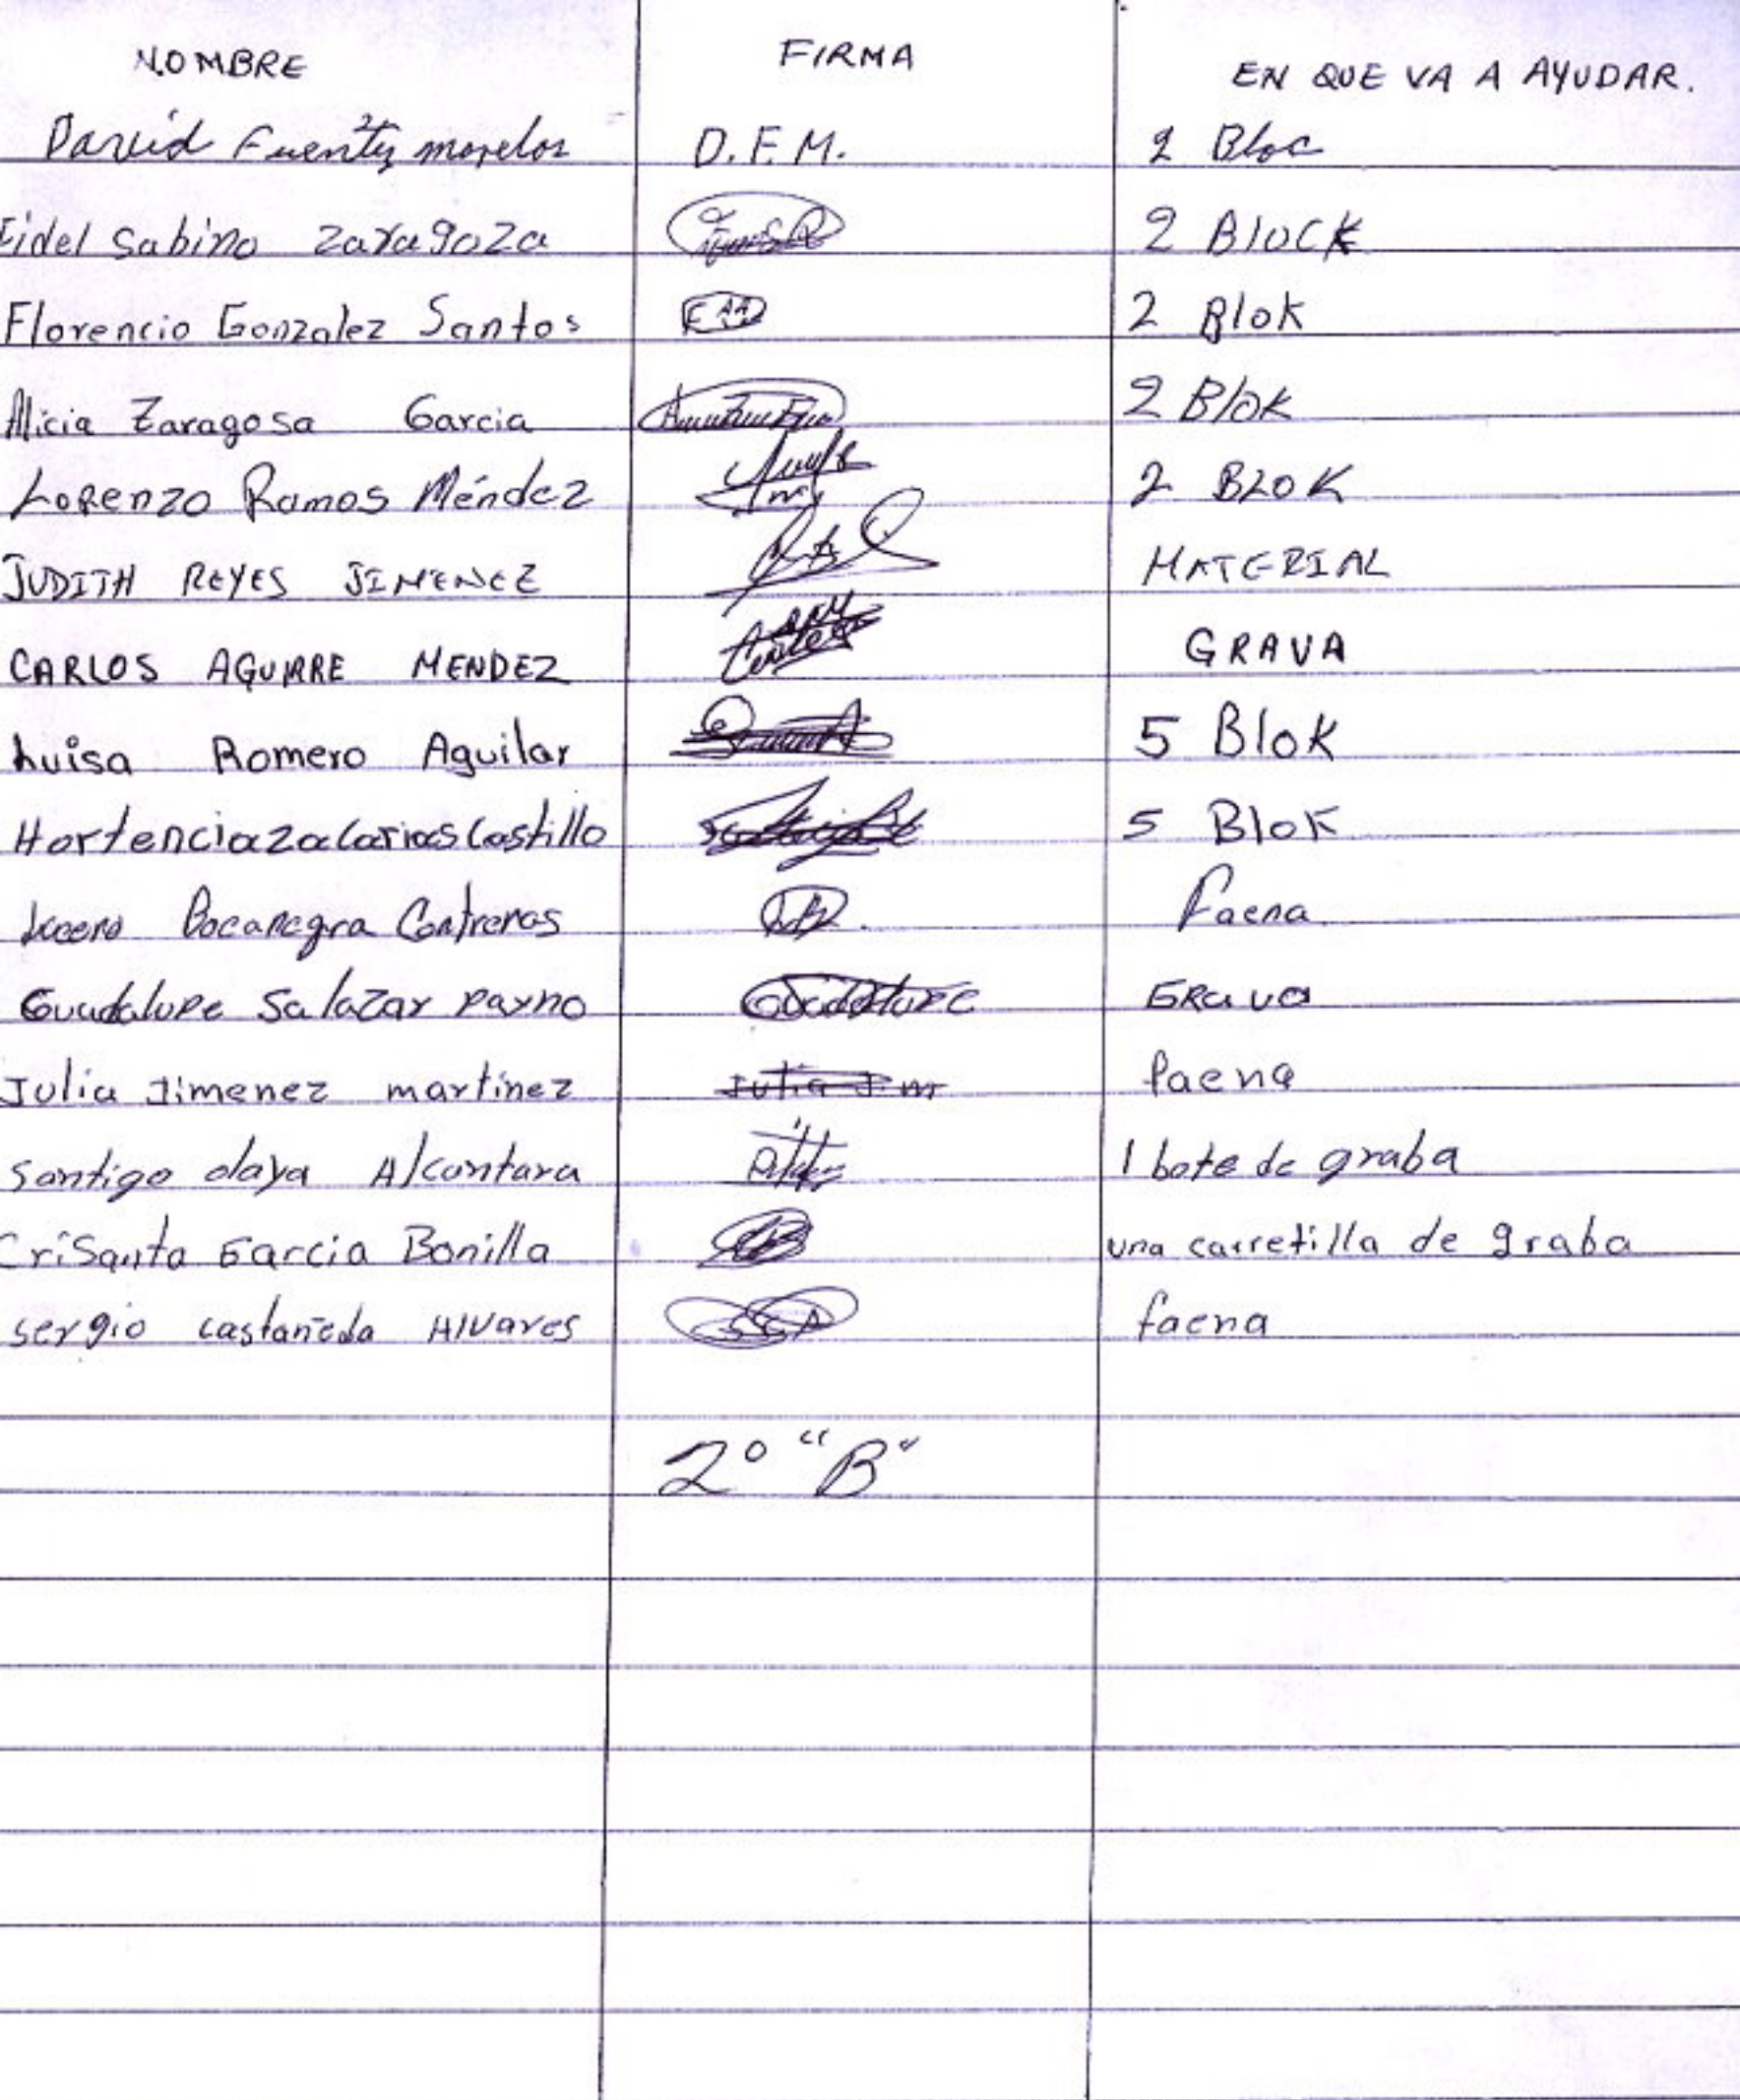 NOMBRE FIRMA EN QUE VA A AYUDAR.
David Fuentes morelos D.F.M. 2 Bloc
Fidel Sabino zaragoza 2 BlOCK
Florencio Gonzalez Santos 2 Blok
Alicia Zaragosa Garcia 2 Blok
Lorenzo Ramos Méndez 2 BLOK
JUDITH REYES JIMENEZ MATERIAL
CARLOS AGUIRRE MENDEZ GRAVA
Luisa Romero Aguilar 5 Blok
Hortencia zacarias Castillo 5 Blok
Lucero Bocanegra Contreras Faena
Guadalupe Salazar Payno GRava
Julia Jimenez martinez Julia J. m faena
Santigo olaya Alcantara 1 bote de graba
CriSanta Garcia Bonilla una carretilla de graba
sergio castañeda Alvares faena
2° "B"